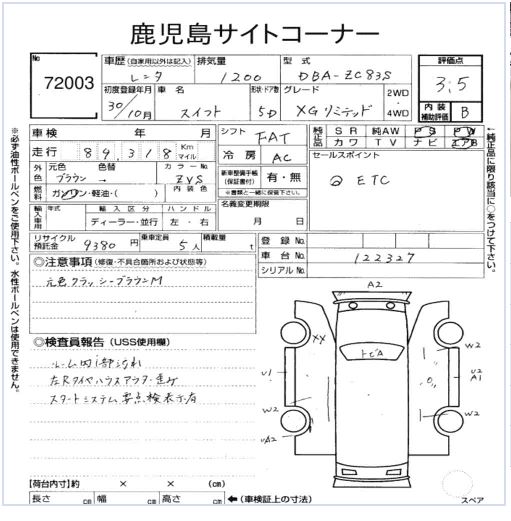 鹿児島サイトコーナー
No
72003
車歴 (自家用以外は記入) 排気量 型式
レンタ 1200 DBA-ZC83S
初度登録年月 車名 形状・ドア数 グレード 2WD・4WD
30/10月 スイフト 5D XGリミテッド
評価点
3.5
内装補助評価 B
車検 年 月
シフト FAT
純正品 SR 純AW PS PW
カワ TV ナビ エアB
走行 89,318 Km マイル
冷房 AC
セールスポイント
② ETC
外色 元色 色替 カラーNo
ブラウン → ZVS
新車整備手帳(保証書付) 有・無
※書類と一緒に保管下さい。
燃料 ガソリン・軽油・( ) 内装色
名義変更期限
月 日
輸入車用 年式 輸入区分 ハンドル
ディーラー・並行 左・右
リサイクル預託金 9380円 乗車定員 5人 積載量 t
登録No.
車台No. 122327
シリアルNo.
◎注意事項 (修復・不具合箇所および状態等)
元色クラッシーブラウンM
◎検査員報告 (USS使用欄)
・ルーム内1部汚れ
左Rタイヤハウスアウター歪み
スタートシステム要点検表示有
A2
XX
W2
トビA
U1
U2
A1
W2
W2
UA2
【荷台内寸】約 × × (cm)
長さ cm 幅 cm 高さ cm ←(車検証上の寸法)
スペア
※必ず油性ボールペンをご使用下さい。水性ボールペンは使用できません。
←純正品に限り該当に○をつけて下さい。